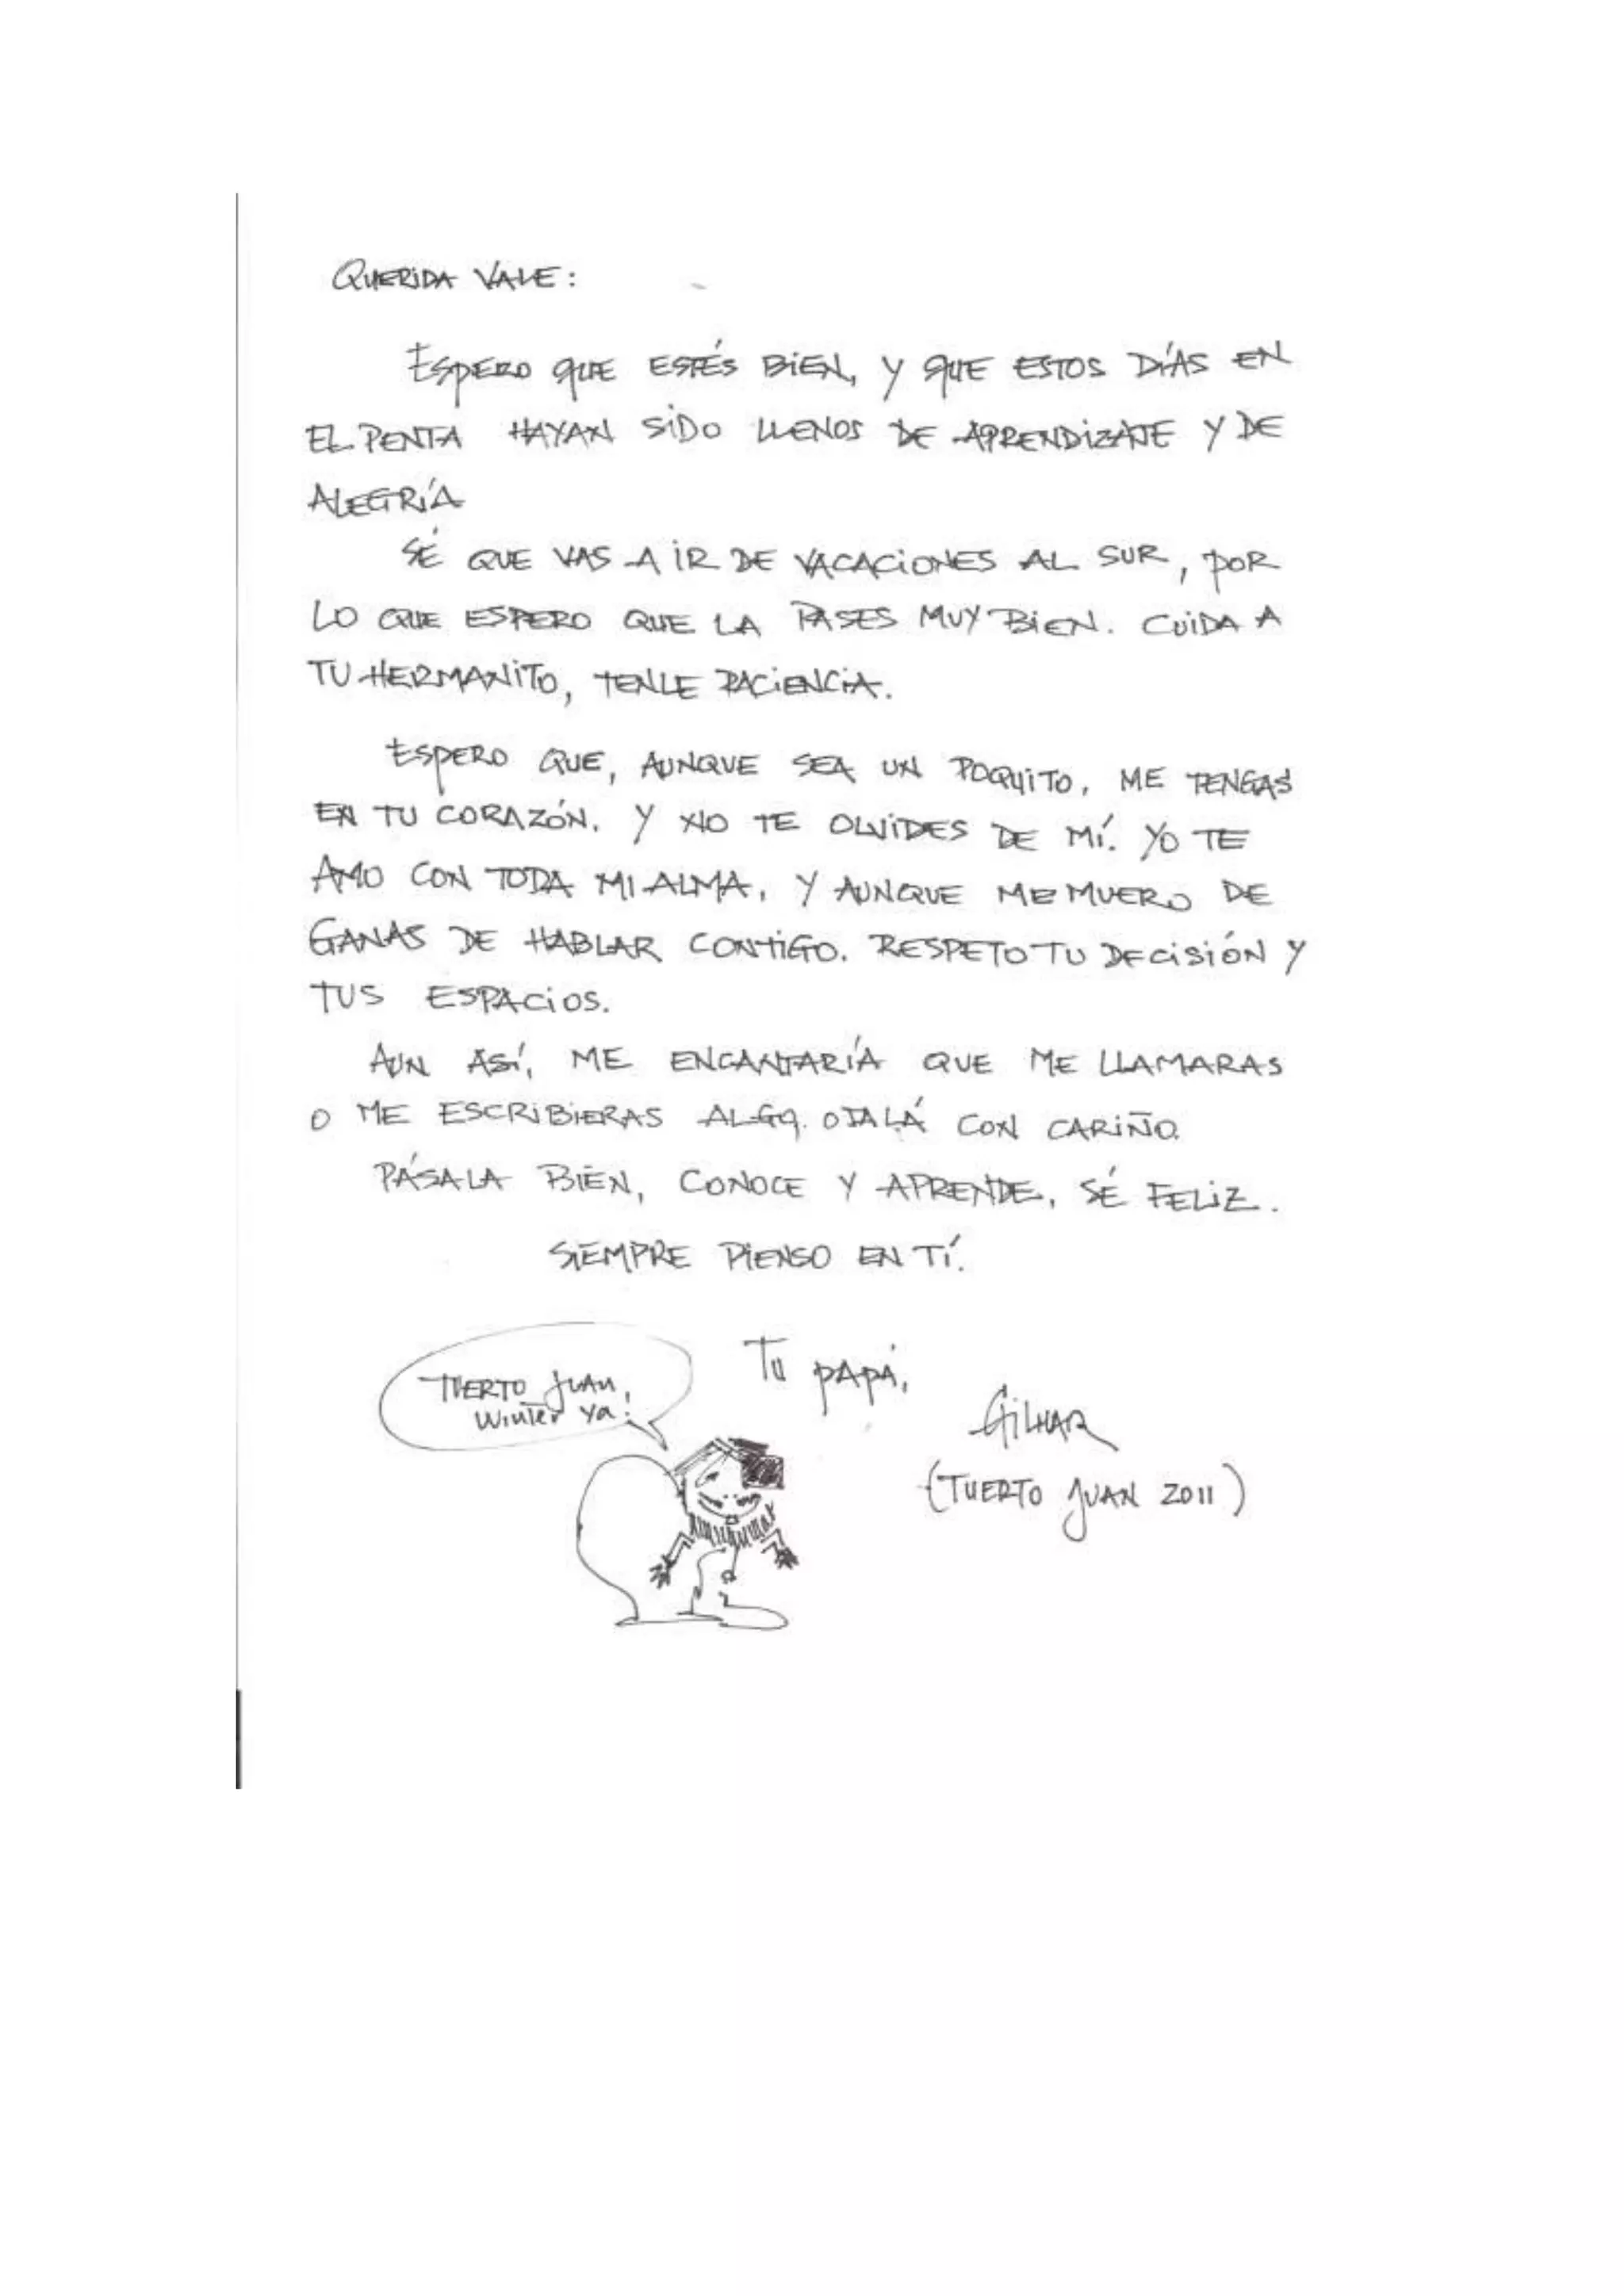 QUERIDA VALE:
ESPERO QUE ESTÉS BIEN, Y QUE ESTOS DÍAS EN
EL PENTA HAYAN SIDO LLENOS DE APRENDIZAJE Y DE
ALEGRÍA
SÉ QUE VAS A IR DE VACACIONES AL SUR, POR
LO QUE ESPERO QUE LA PASES MUY BIEN. CUIDA A
TU HERMANITO, TENLE PACIENCIA.
ESPERO QUE, AUNQUE SEA UN POQUITO, ME TENGAS
EN TU CORAZÓN. Y NO TE OLVIDES DE MÍ. YO TE
AMO CON TODA MI ALMA, Y AUNQUE ME MUERO DE
GANAS DE HABLAR CONTIGO. RESPETO TU DECISIÓN Y
TUS ESPACIOS.
AUN ASÍ, ME ENCANTARÍA QUE ME LLAMARAS
O ME ESCRIBIERAS ALGO. OJALÁ CON CARIÑO.
PÁSALA BIEN, CONOCE Y APRENDE, SÉ FELIZ.
SIEMPRE PIENSO EN TÍ.
TU PAPÁ,
GILHAR
(TUERTO JUAN 2011)
TUERTO JUAN,
Winter ya!